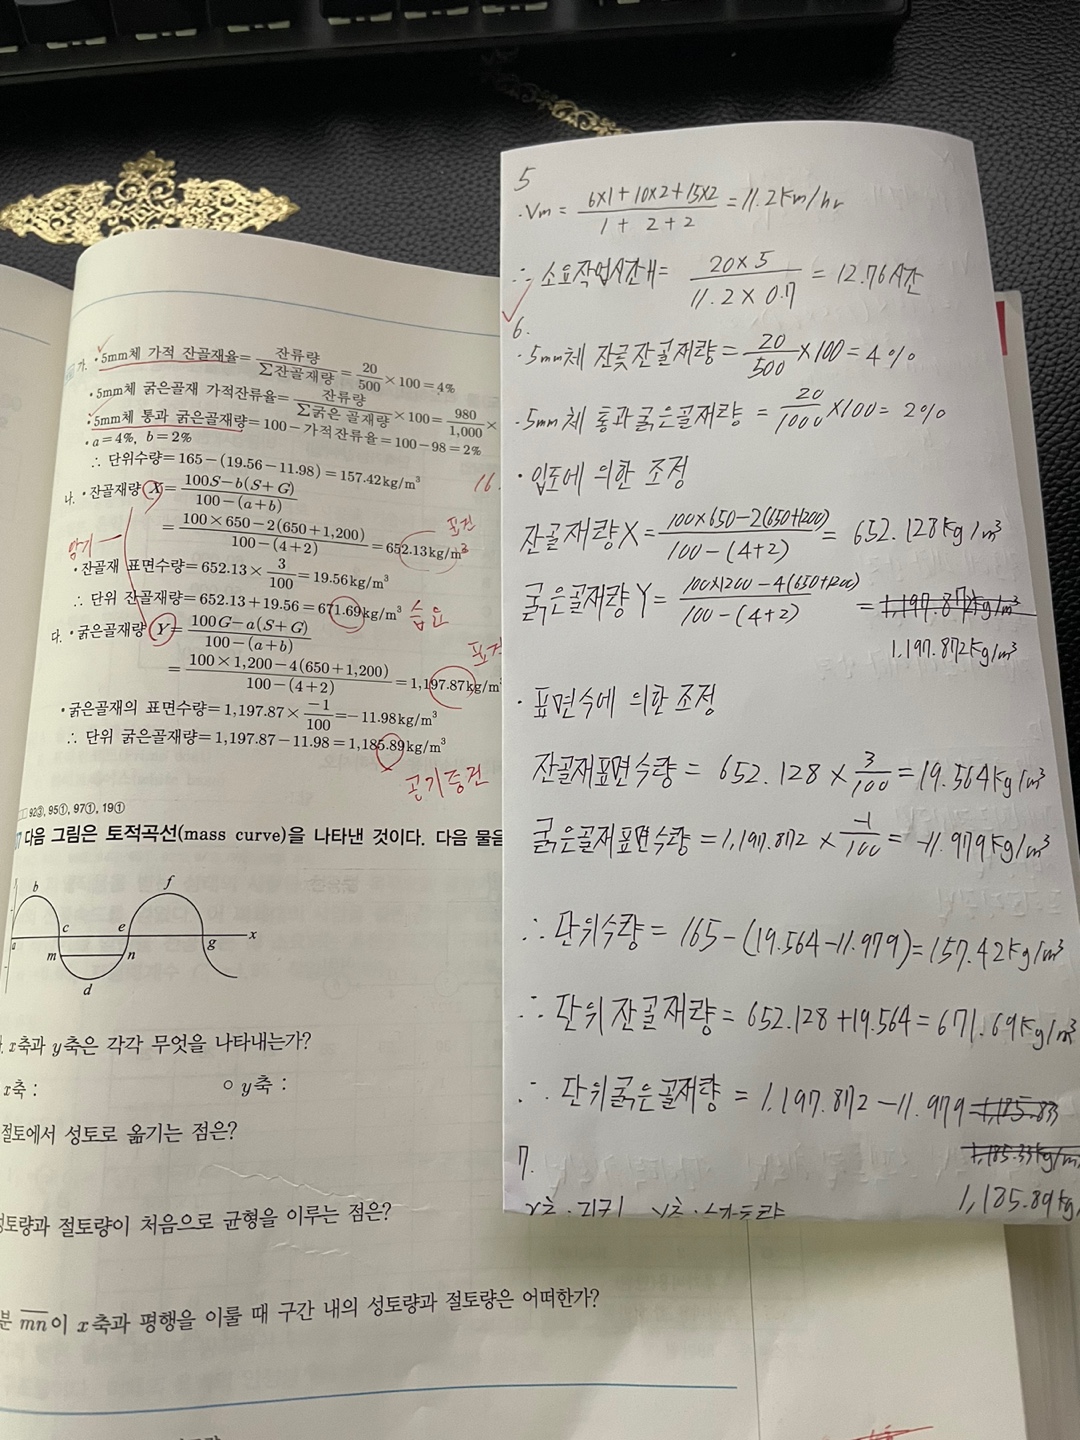 가. · 5mm체 가적 잔골재율 = 잔류량 / Σ잔골재량 = 20/500 × 100 = 4%
· 5mm체 굵은골재 가적잔류율 = 잔류량 / Σ굵은 골재량 × 100 = 980/1,000 ×
· 5mm체 통과 굵은골재량 = 100 − 가적잔류율 = 100 − 98 = 2%
· a = 4%, b = 2%
∴ 단위수량 = 165 − (19.56 − 11.98) = 157.42kg/m³
16.
나. · 잔골재량 X = 100S − b(S+G) / 100 − (a+b)
= 100×650 − 2(650+1,200) / 100 − (4+2) = 652.13kg/m³
표건
암기
· 잔골재 표면수량 = 652.13 × 3/100 = 19.56kg/m³
∴ 단위 잔골재량 = 652.13 + 19.56 = 671.69kg/m³
습윤
다. · 굵은골재량 Y = 100G − a(S+G) / 100 − (a+b)
표건
= 100×1,200 − 4(650+1,200) / 100 − (4+2) = 1,197.87kg/m³
· 굵은골재의 표면수량 = 1,197.87 × −1/100 = −11.98kg/m³
∴ 단위 굵은골재량 = 1,197.87 − 11.98 = 1,185.89kg/m³
공기중건
92③, 95①, 97①, 19①
7 다음 그림은 토적곡선(mass curve)을 나타낸 것이다. 다음 물음
b f
a c e g x
m n
d
x축과 y축은 각각 무엇을 나타내는가?
x축 : ○ y축 :
절토에서 성토로 옮기는 점은?
성토량과 절토량이 처음으로 균형을 이루는 점은?
분 mn이 x축과 평행을 이룰 때 구간 내의 성토량과 절토량은 어떠한가?
5
· Vm = 6×1+10×2+15×2 / 1+2+2 = 11.2km/hr
∴ 소요작업시간 H = 20×5 / 11.2×0.7 = 12.76시간
6.
· 5mm체 잔골재량 = 20/500 ×100 = 4%
· 5mm체 통과굵은골재량 = 20/1000 ×100 = 2%
· 입도에 의한 조정
잔골재량 X = 100×650−2(650+1200) / 100−(4+2) = 652.128kg/m³
굵은골재량 Y = 100×1200−4(650+1200) / 100−(4+2) = 1,197.872kg/m³
1,197.872kg/m³
· 표면수에 의한 조정
잔골재표면수량 = 652.128 × 3/100 = 19.564kg/m³
굵은골재표면수량 = 1,197.872 × −1/100 = −11.979kg/m³
∴ 단위수량 = 165−(19.564−11.979) = 157.42kg/m³
∴ 단위 잔골재량 = 652.128+19.564 = 671.69kg/m³
∴ 단위굵은골재량 = 1,197.872−11.979 = 1,185.83
1,185.33kg/m
1,185.89kg
7.